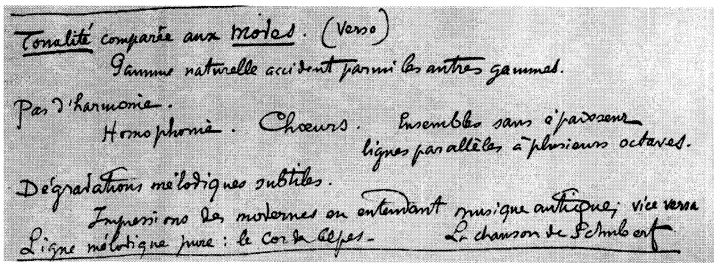 Tonalité comparée aux modes. (Verso)
Gamme naturelle accident parmi les autres gammes.
Pas d'harmonie.
Homophonie. Chœurs. Ensembles sans épaisseur
lignes parallèles à plusieurs octaves.
Dégradations mélodiques subtiles.
Impressions des modernes en entendant musique antique; vice versa
Ligne mélodique pure : le cor des Alpes - La chanson de Schubert